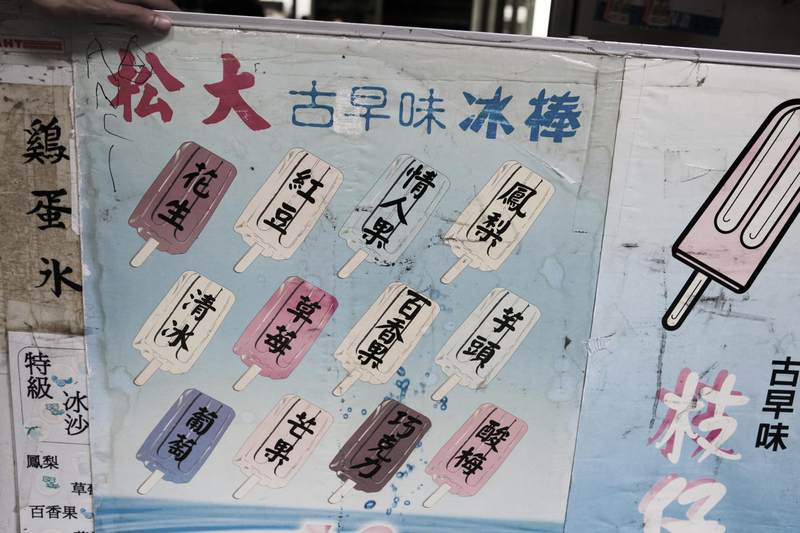 鷄蛋氷
特級
冰沙
鳳梨
百香果
松大 古早味 冰棒
花生 紅豆 情人果 鳳梨
清冰 草莓 百香果 芋頭
葡萄 芒果 巧克力 酸梅
古早味
枝仔